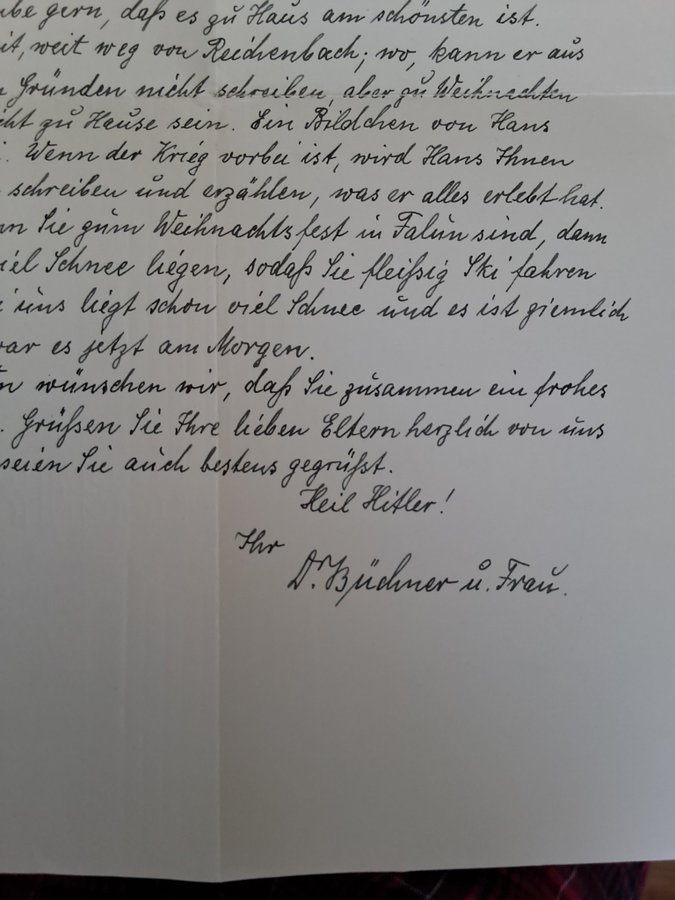 be gern, daß es zu Haus am schönsten ist.
it, weit weg von Reichenbach; wo, kann er aus
Gründen nicht schreiben, aber zu Weihnachten
cht zu Hause sein. Ein Bildchen von Hans
i. Wenn der Krieg vorbei ist, wird Hans Ihnen
schreiben und erzählen, was er alles erlebt hat.
nn Sie zum Weihnachtsfest in Falun sind, dann
iel Schnee liegen, sodaß Sie fleißig Ski fahren
i uns liegt schon viel Schnee und es ist ziemlich
war es jetzt am Morgen.
en wünschen wir, daß Sie zusammen ein frohes
. Grüßen Sie Ihre lieben Eltern herzlich von uns
seien Sie auch bestens gegrüßt.
Heil Hitler!
Ihr
Dr. Büchner u. Frau.